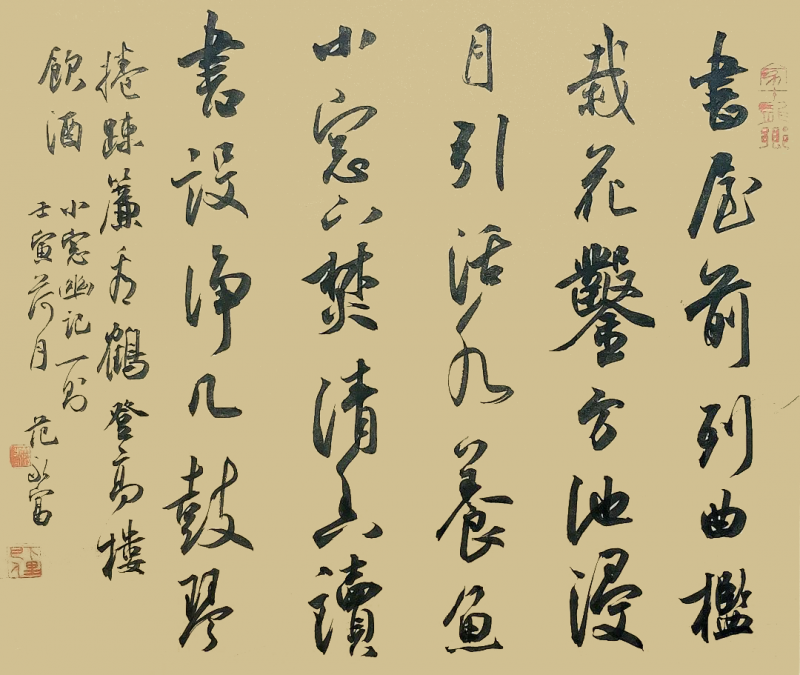 書屋前列曲檻
栽花鑿方池浸
月引活水養魚
小窓下焚清香讀
書設淨几鼓琴
捲疎簾看鶴登高樓
飲酒
小窓幽記一則
壬寅荷月
范永富
下里巴人